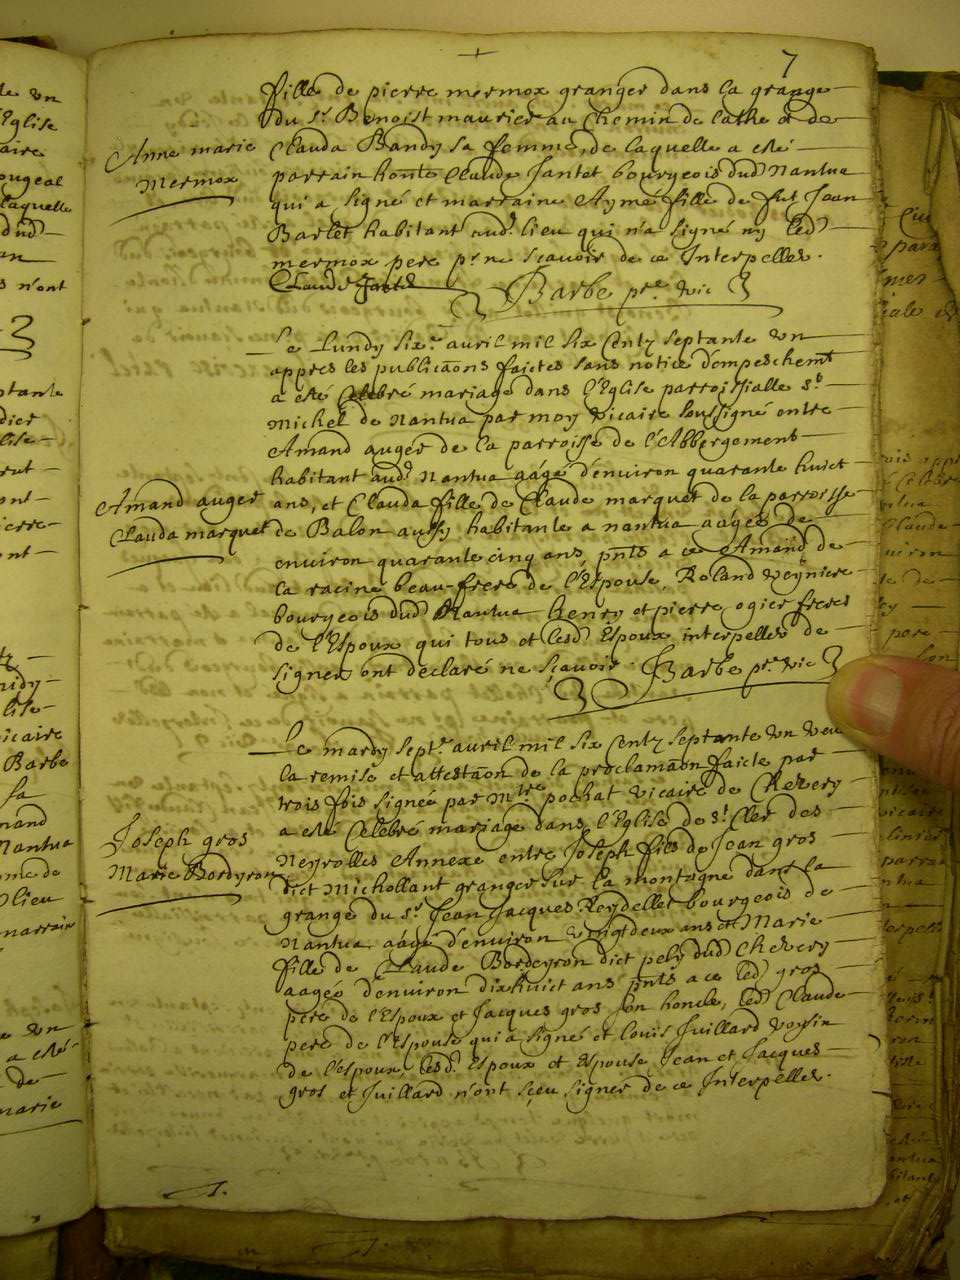 7
fille de pierre mermox granger dans la grange
du sr. Benoist maurier au Chemin de lathe et de
Anne marie
Mermox
Clauda Bandy sa femme, de laquelle a esté
parrain honte Claude Jantet bourgeois dud Nantua
qui a signé et marraine Aymé fille de fut Jean
Barlet habitant aud. lieu qui n'a signé ny led
mermox pere pr ne scavoir de ce Interpellez.
Claude Jantet
Barbe ptre vic
Le Lundy six.e avril mil six Centz septante un
appres les publicaons faictes sans notice d'empeschemt
a esté Celebré mariage dans l'Eglise parroissialle st
Michel de Nantua par moy vicaire soussigné entre
Amand auger de la parroisse de l'Abbergement
habitant aud. Nantua aâgé d'environ quarante huict
Amand auger
Clauda marquet
ans, et Clauda fille de Claude marquet de la parroisse
de Balon aussy habitante a nantua aâgée de
environ quarante cinq ans, pnts a ce Amand de
la racine beau-frere de l'Espouse, Roland veyniere
bourgeois dud Nantua henry et pierre ogier freres
de l'Espoux qui tous et lesd Espoux interpellez de
signer ont declaré ne scavoir. Barbe ptre vic
Le mardy sept.e avril mil six Centz septante un veu
la remise et attestaon de la proclamaon faicte par
trois fois signée par Mtre pochat vicaire de Chevery
a esté Celebré mariage dans l'Eglise de st Cler des
Joseph gros
Marie Bordeyron
Neyrolles Annexe entre Joseph fils de Jean gros
dict Michollant granger sur la montagne dans la
grange du sr Jean Jacques Reydellet bourgeois de
Nantua aâgé d'environ vingt deux ans et Marie
fille de Claude Bordeyron dict pely dud Chevery
aagée d'environ dixhuict ans pnts a ce led gros
pere de l'Espoux et Jacques gros son honcle, led Claude
pere de l'Espouse qui a signé et Louis Juillard voysin
de l'espoux, lesd. Espoux et Espouse, Jean et Jacques
gros et Juillard n'ont sceu signer de ce Interpellez.